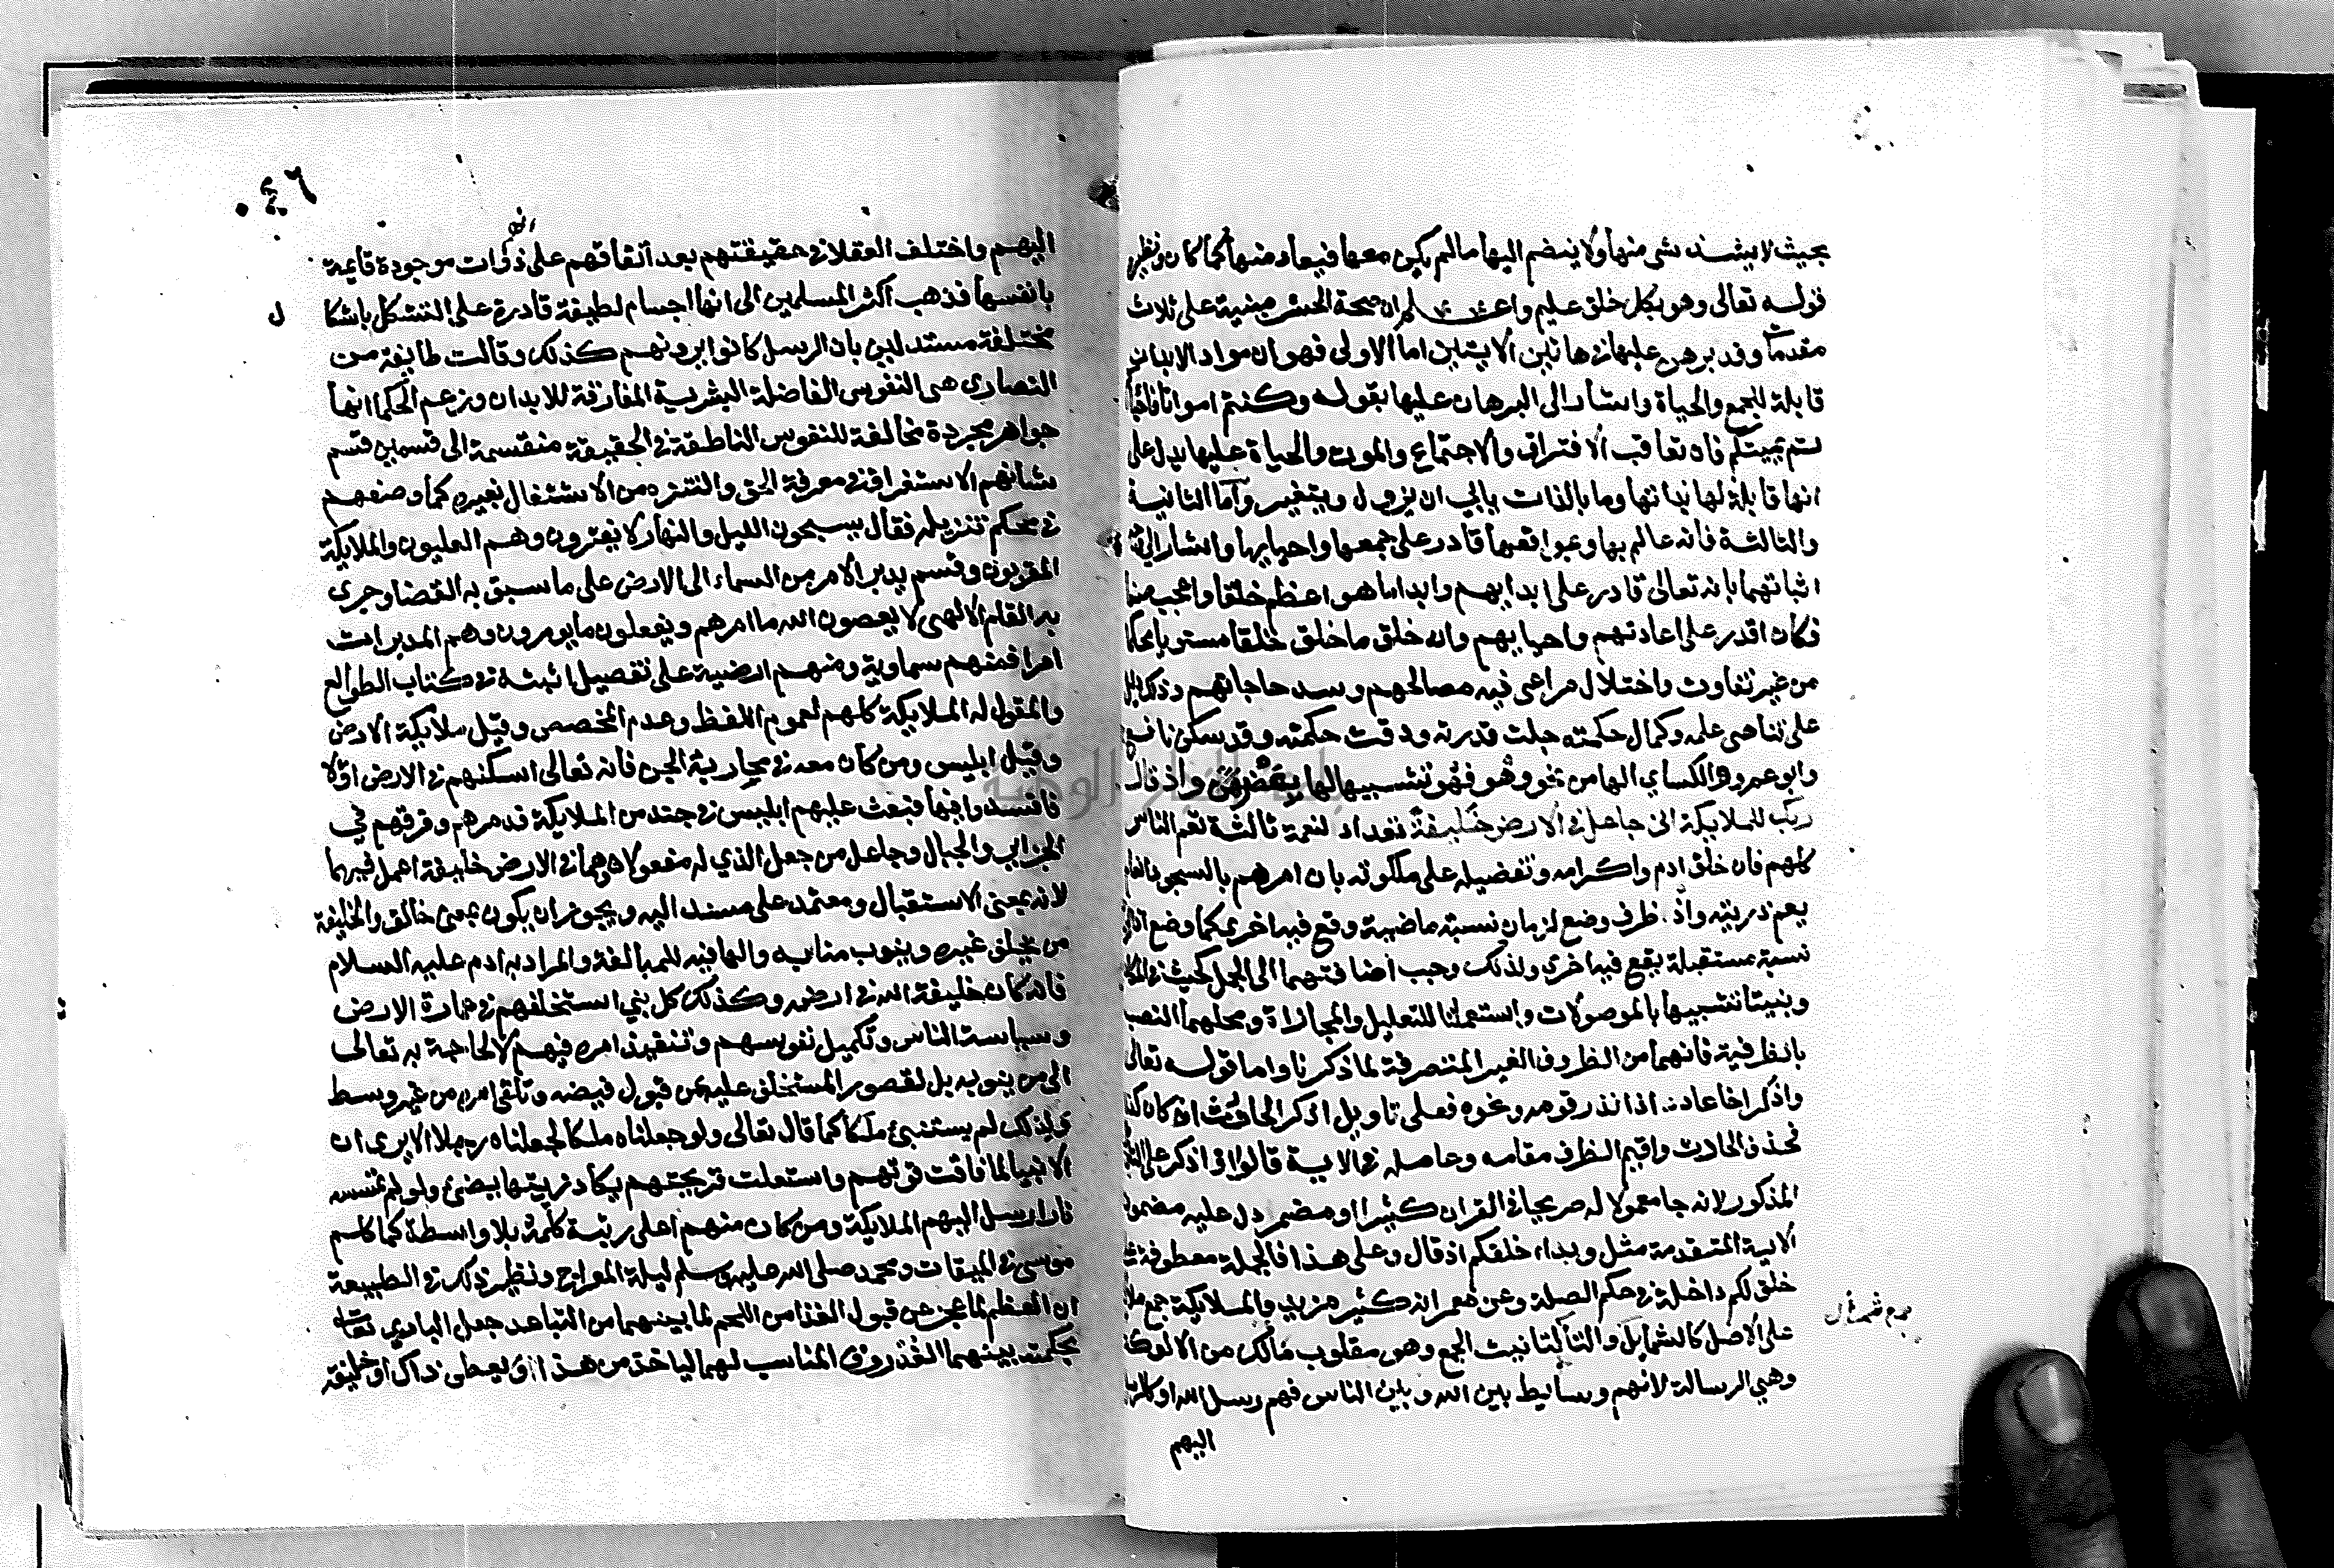 بحيث لا يشذ شي منها ولا ينضم اليها ما لم يكن معها فيعاد منها كما كان ونظيره
قوله تعالى وهو بكل خلق عليم واعلم ان صحة الحشر مبنية على ثلاث
مقدمات وقد برهن عليها في هاتين الايتين اما الاولى فهو ان مواد الابدان
قابلة للجمع والحياة واشار الى البرهان عليها بقوله وكنتم امواتا فاحياكم
ثم يميتكم فان تعاقب الافتراق والاجتماع والموت والحياة عليها يدل على
انها قابلة لها بذاتها وما بالذات يابي ان يزول ويتغير واما الثانية
والثالثة فانه عالم بها وبمواقعها قادر على جمعها واحيايها واشار الى
اثباتهما بانه تعالى قادر على ابدايهم وابدا ما هو اعظم خلقا واعجب صنعا
فكان اقدر على اعادتهم واحيايهم وانه خلق ما خلق خلقا مستويا محكما
من غير تفاوت واختلال مراعى فيه مصالحهم وسد حاجاتهم وذلك دليل
على تناهى علمه وكمال حكمته جلت قدرته ودقت حكمته وقد سكن نافع
وابو عمرو والكساي الها من نحو وهو فهو تشبيها لها بعضد واذ قال
ربك للملايكة انى جاعل في الارض خليفة تعداد لنعمة ثالثة تعم الناس
كلهم فان خلق ادم واكرامه وتفضيله على ملكوته بان امرهم بالسجود انعام
يعم ذريته واذ ظرف وضع لزمان نسبة ماضية وقع فيه اخرى كما وضع اذا
نسبة مستقبلة يقع فيه اخرى ولذلك وجب اضافتهما الى الجمل كحيث في المكان
وبنيتا تشبيها بالموصولات واستعملتا للتعليل والمجازاة ومحلهما النصب
بالظرفية فانهما من الظروف الغير المتصرفة لما ذكرنا واما قوله تعالى
واذكر اخا عاد اذ انذر قومه ونحوه فعلى تاويل اذكر الحادث اذ كان كذا
فحذف الحادث واقيم الظرف مقامه وعامله في الاية قالوا او اذكر على
المذكور لانه جا معمولا له صريحا في القران كثيرا او مضمر دل عليه مضمون
الاية المتقدمة مثل وبدا خلقكم اذ قال وعلى هذا فالجملة معطوفة على
خلق لكم داخلة في حكم الصلة وعن معمر انه كثير مزيد والملايكة جمع ملاك
على الاصل كالشمايل والتا لتانيث الجمع وهو مقلوب مالك من الالوكة
وهي الرسالة لانهم وسايط بين الله وبين الناس فهم رسل الله او كالرسل
اليهم
جمع شمأل
٠٤٦
اليهم واختلف العقلا في حقيقتهم بعد اتفاقهم على انها ذوات موجودة قايمة
بانفسها فذهب اكثر المسلمين الى انها اجسام لطيفة قادرة على التشكل باشكال
مختلفة مستدلين بان الرسل كانوا يرونهم كذلك وقالت طايفة من
النصارى هى النفوس الفاضلة البشرية المفارقة للابدان وزعم الحكما انها
جواهر مجردة مخالفة للنفوس الناطقة في الحقيقة منقسمة الى قسمين قسم
شانهم الاستغراق في معرفة الحق والتنزه من الاشتغال بغيره كما وصفهم
في محكم تنزيله فقال يسبحون الليل والنهار لا يفترون وهم العليون والملايكة
المقربون وقسم يدبر الامر من السماء الى الارض على ما سبق به القضا وجرى
به القلم الالهى لا يعصون الله ما امرهم ويفعلون ما يومرون وهم المدبرات
امرا فمنهم سماوية ومنهم ارضية على تفصيل اثبته في كتاب الطوالع
والمقول له الملايكة كلهم لعموم اللفظ وعدم المخصص وقيل ملايكة الارض
وقيل ابليس ومن كان معه في محاربة الجن فانه تعالى اسكنهم في الارض اولا
فافسدوا فيها فبعث عليهم ابليس في جند من الملايكة فدمرهم وفرقهم في
الجزاير والجبال وجاعل من جعل الذي له مفعولان وهما في الارض خليفة اعمل فيهما
لانه بمعنى الاستقبال ومعتمد على مسند اليه ويجوز ان يكون بمعنى خالق والخليفة
من يخلق غيره وينوب منابه والها فيه للمبالغة والمراد به ادم عليه السلام
فانه كان خليفة الله في ارضه وكذلك كل نبي استخلفهم في عمارة الارض
وسياسة الناس وتكميل نفوسهم وتنفيذ امره فيهم لا لحاجة به تعالى
الى من ينوبه بل لقصور المستخلف عليه عن قبول فيضه وتلقى امره من غير وسط
ولذلك لم يستنبئ ملكا كما قال تعالى ولو جعلناه ملكا لجعلناه رجلا الا يرى ان
الانبيا لما فاقت قوتهم واستعلت قريحتهم يكاد زيتها يضئ ولو لم تمسسه
نار ارسل اليهم الملايكة ومن كان منهم اعلى رتبة كلمه بلا واسطة كما كلم
موسى في الميقات ومحمد صلى الله عليه وسلم ليلة المعراج ونظير ذلك في الطبيعة
ان العظم لما عجز عن قبول الغذا من اللحم لما بينهما من التباعد جعل الباري تعالى
بحكمته بينهما الغضروف المناسب لهما لياخذ من هذا ويعطى ذاك او خليفة